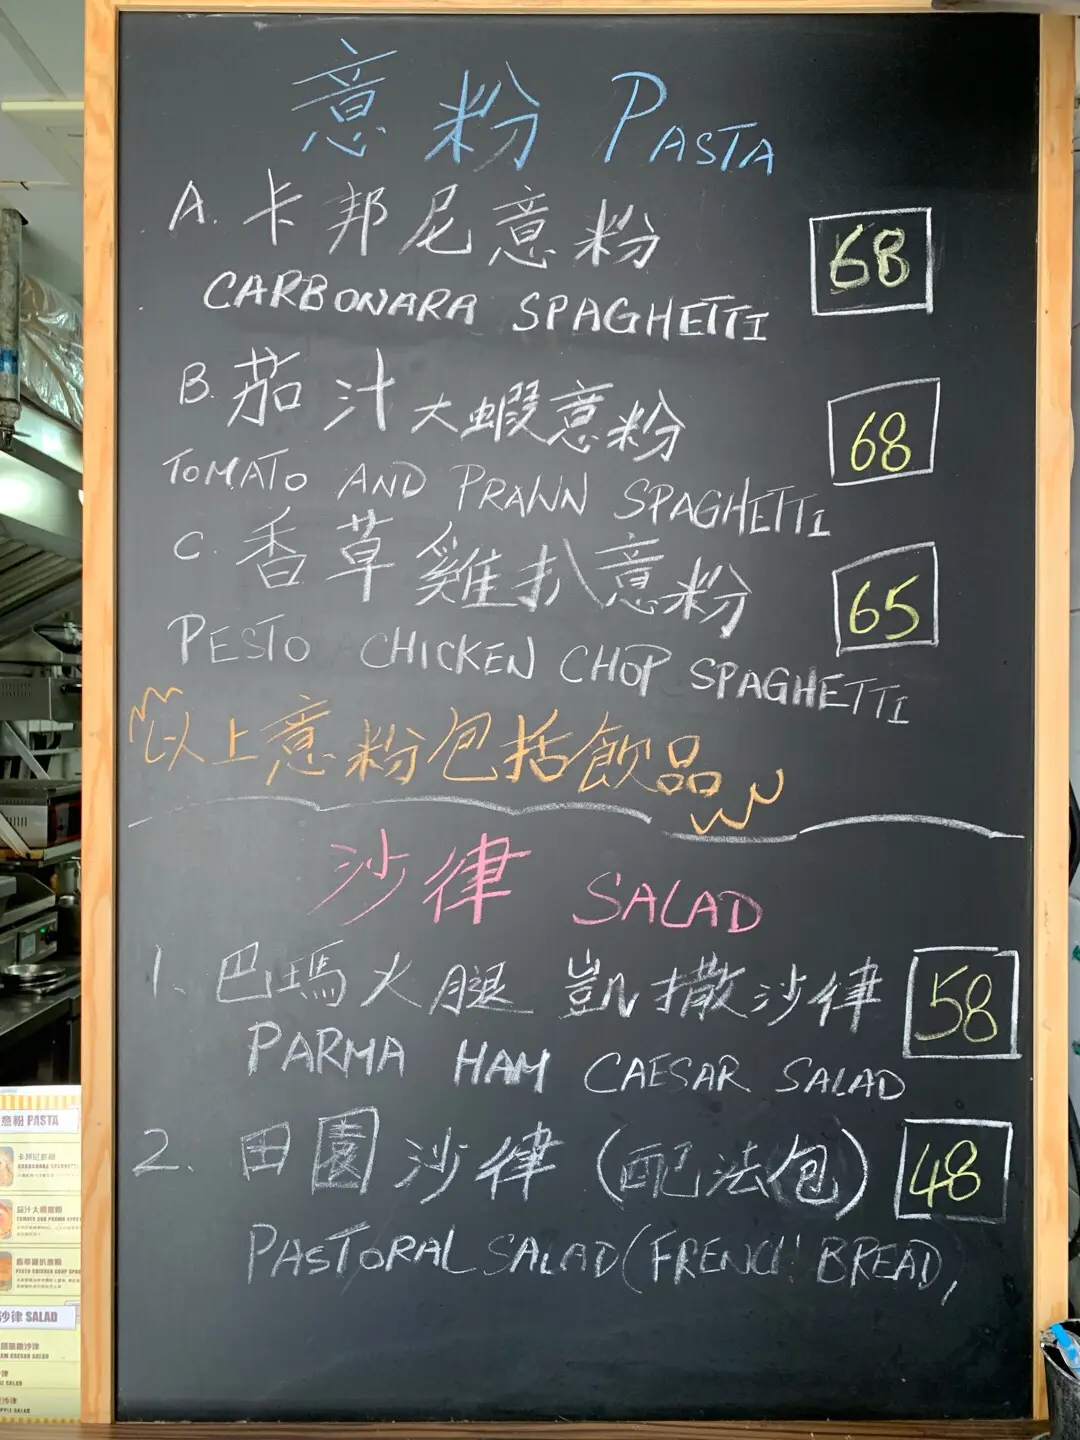 意粉 PASTA
A. 卡邦尼意粉 68
CARBONARA SPAGHETTI
B. 茄汁大蝦意粉 68
TOMATO AND PRAWN SPAGHETTI
C. 香草雞扒意粉 65
PESTO CHICKEN CHOP SPAGHETTI
以上意粉包括飲品
沙律 SALAD
1. 巴瑪火腿 凱撒沙律 58
PARMA HAM CAESAR SALAD
2. 田園沙律 (配法包) 48
PASTORAL SALAD (FRENCH BREAD)
意粉 PASTA
卡邦尼意粉
CARBONARA SPAGHETTI
茄汁大蝦意粉
TOMATO AND PRAWN
香草雞扒意粉
PESTO CHICKEN CHOP
沙律 SALAD